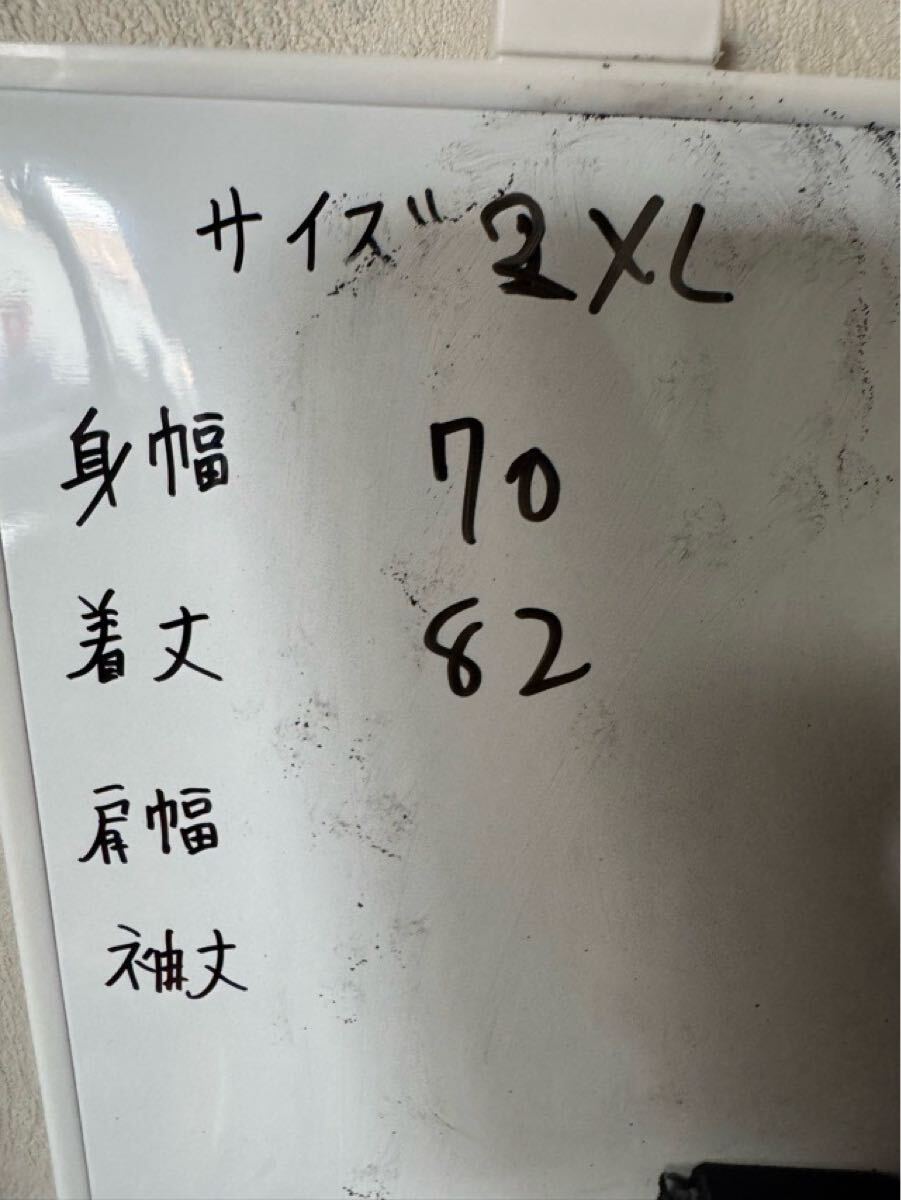 サイズ 2XL
身幅 70
着丈 82
肩幅
袖丈